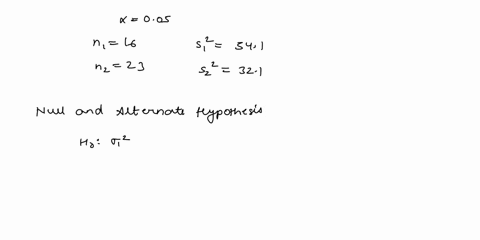 α = 0.05
n₁ = 16 s₁² = 54.1
n₂ = 23 s₂² = 32.1
Null and Alternate Hypothesis
H₀: σ₁²